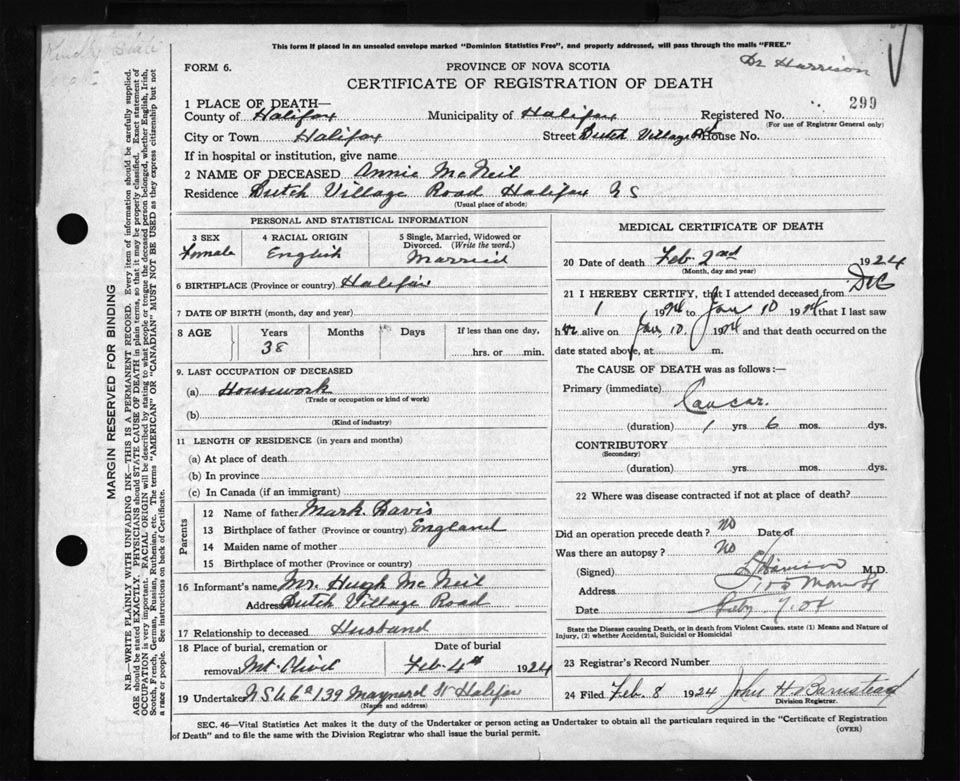 This form if placed in an unsealed envelope marked "Dominion Statistics Free", and properly addressed, will pass through the mails "FREE."
Dr Harrison
FORM 6.
PROVINCE OF NOVA SCOTIA
CERTIFICATE OF REGISTRATION OF DEATH
299
1 PLACE OF DEATH—
County of Halifax Municipality of Halifax Registered No.
(For use of Registrar General only)
City or Town Halifax Street Dutch Village Rd House No.
If in hospital or institution, give name
2 NAME OF DECEASED Annie McNeil
Residence Dutch Village Road Halifax N S
(Usual place of abode)
PERSONAL AND STATISTICAL INFORMATION
3 SEX 4 RACIAL ORIGIN 5 Single, Married, Widowed or Divorced. (Write the word.)
Female English Married
6 BIRTHPLACE (Province or country) Halifax
7 DATE OF BIRTH (month, day and year)
8 AGE Years Months Days If less than one day,
38 hrs. or min.
9. LAST OCCUPATION OF DECEASED
(a) Housework
(Trade or occupation or kind of work)
(b)
(Kind of industry)
11 LENGTH OF RESIDENCE (in years and months)
(a) At place of death
(b) In province
(c) In Canada (if an immigrant)
Parents
12 Name of father Mark Davis
13 Birthplace of father (Province or country) England
14 Maiden name of mother
15 Birthplace of mother (Province or country)
16 Informant's name Mr. Hugh McNeil
Address Dutch Village Road
17 Relationship to deceased Husband
18 Place of burial, cremation or Date of burial
removal Mt Olivet Feb. 4th 1924
19 Undertaker N S U Co 139 Maynard St Halifax
(Name and address)
MEDICAL CERTIFICATE OF DEATH
20 Date of death Feb. 2nd 1924
(Month, day and year)
Dec
21 I HEREBY CERTIFY, that I attended deceased from
1 1924 to Jan 10 1924 that I last saw
her alive on Jan. 10. 1924 and that death occurred on
date stated above, at m.
The CAUSE OF DEATH was as follows:—
Primary (immediate)
Cancar.
(duration) 1 yrs 6 mos. dys.
CONTRIBUTORY
(Secondary)
(duration) yrs mos. dys.
22 Where was disease contracted if not at place of death?
Did an operation precede death? No Date of
Was there an autopsy? No
(Signed) Harrison M.D.
Address
Date
State the Disease causing Death, or in death from Violent Causes, state (1) Means and Nature of
Injury, (2) whether Accidental, Suicidal or Homicidal
23 Registrar's Record Number
24 Filed Feb. 8 1924 John H Barnstead
Division Registrar.
SEC. 46—Vital Statistics Act makes it the duty of the Undertaker or person acting as Undertaker to obtain all the particulars required in the "Certificate of Registration
of Death" and to file the same with the Division Registrar who shall issue the burial permit.
(OVER)
MARGIN RESERVED FOR BINDING
N.B.—WRITE PLAINLY WITH UNFADING INK—THIS IS A PERMANENT RECORD. Every item of information should be carefully supplied.
AGE should be stated EXACTLY. PHYSICIANS should STATE CAUSE OF DEATH in plain terms, so that it may be properly classified. Exact statement of
OCCUPATION is very important. RACIAL ORIGIN will be described by stating to what people or tongue the deceased person belonged, whether English, Irish,
Scotch, French, German, Russian, Ruthenian, etc. The terms "AMERICAN" or "CANADIAN" MUST NOT BE USED as they express citizenship but not
a race or people. See instructions on back of Certificate.